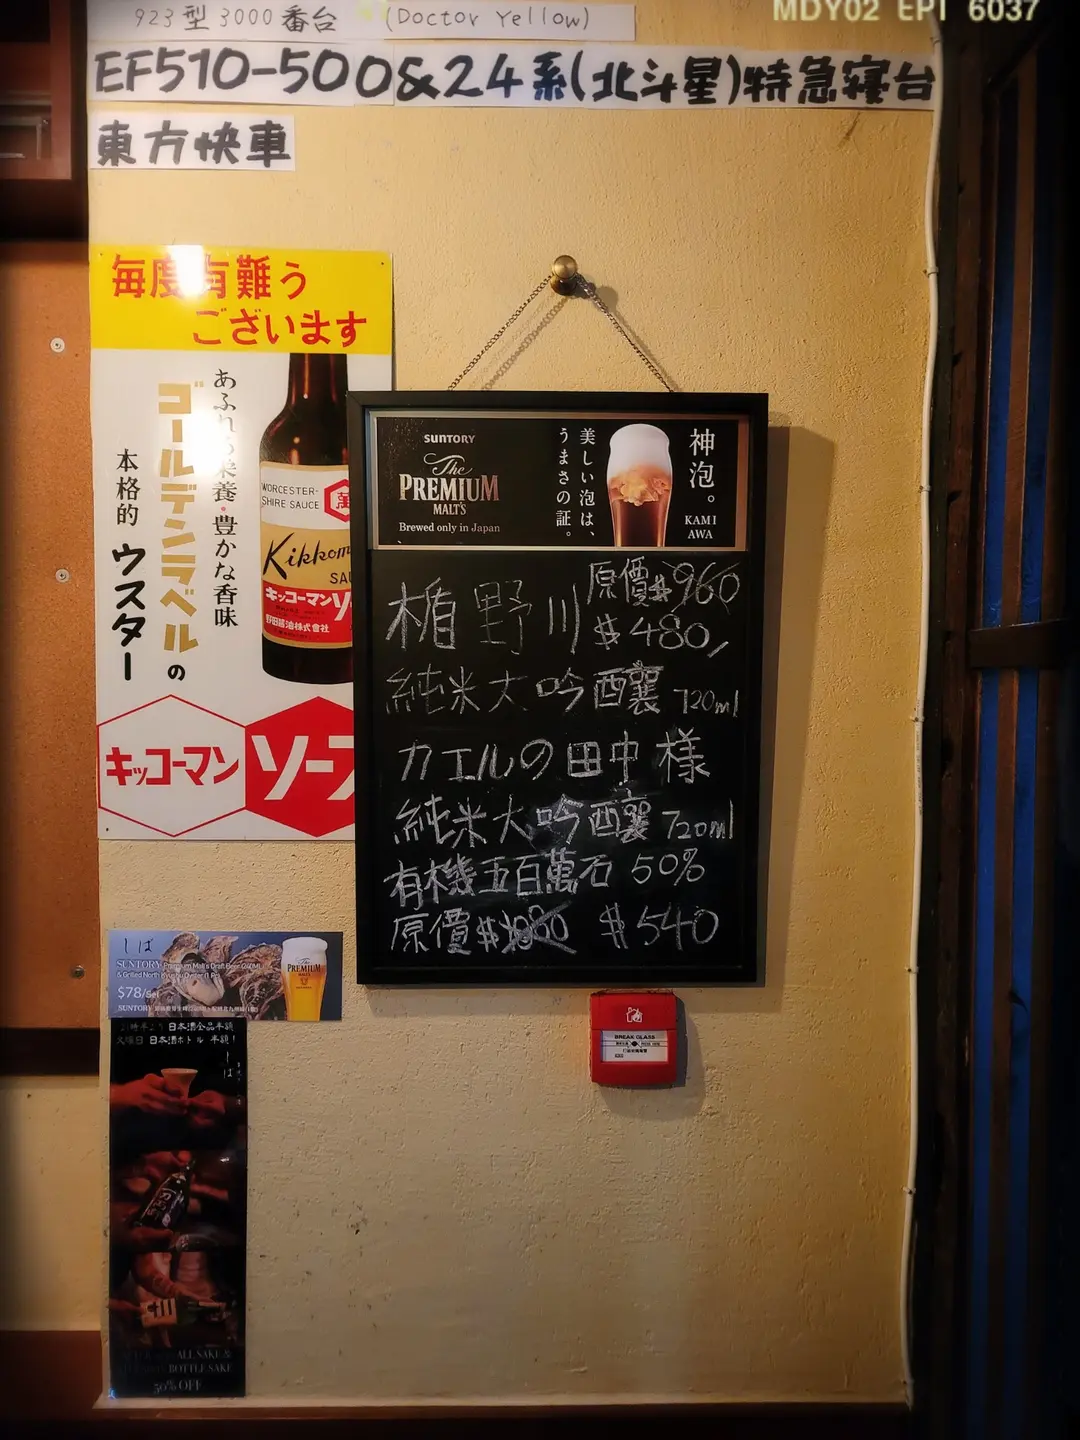 MDY02 EPI 6037
923型 3000番台 (Doctor Yellow)
EF510-500&24系(北斗星)特急寝台
東方快車
毎度有難う
ございます
あふれる栄養・豊かな香味
ゴールデンラベルの
本格的ウスター
WORCESTER-
SHIRE SAUCE
萬
Kikkom
SAU
キッコーマンソ
野田醤油株式會社
キッコーマン
ソース
SUNTORY
The
PREMIUM
MALT'S
Brewed only in Japan
美しい泡は、
うまさの証。
神泡。
KAMI
AWA
楯野川
原價$960
$480/
純米大吟醸 720ml
カエルの田中様
純米大吟醸 720ml
有機五百萬石 50%
原價$1080 $540
しば
SUNTORY Premium Malt's Draft Beer (260ML)
& Grilled North Kyushu Oyster (1 Pc)
$78/Set
PREMIUM
BREAK GLASS
日本酒全品半額
火曜日 日本酒ボトル 半額!
しば
ALL SAKE &
BOTTLE SAKE
50% OFF